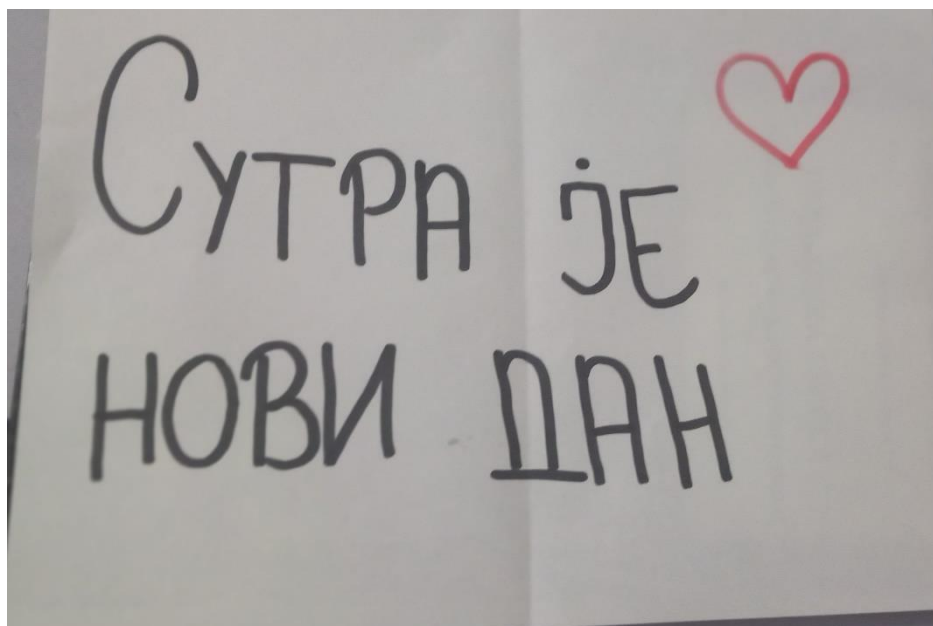 Сутра је
нови дан